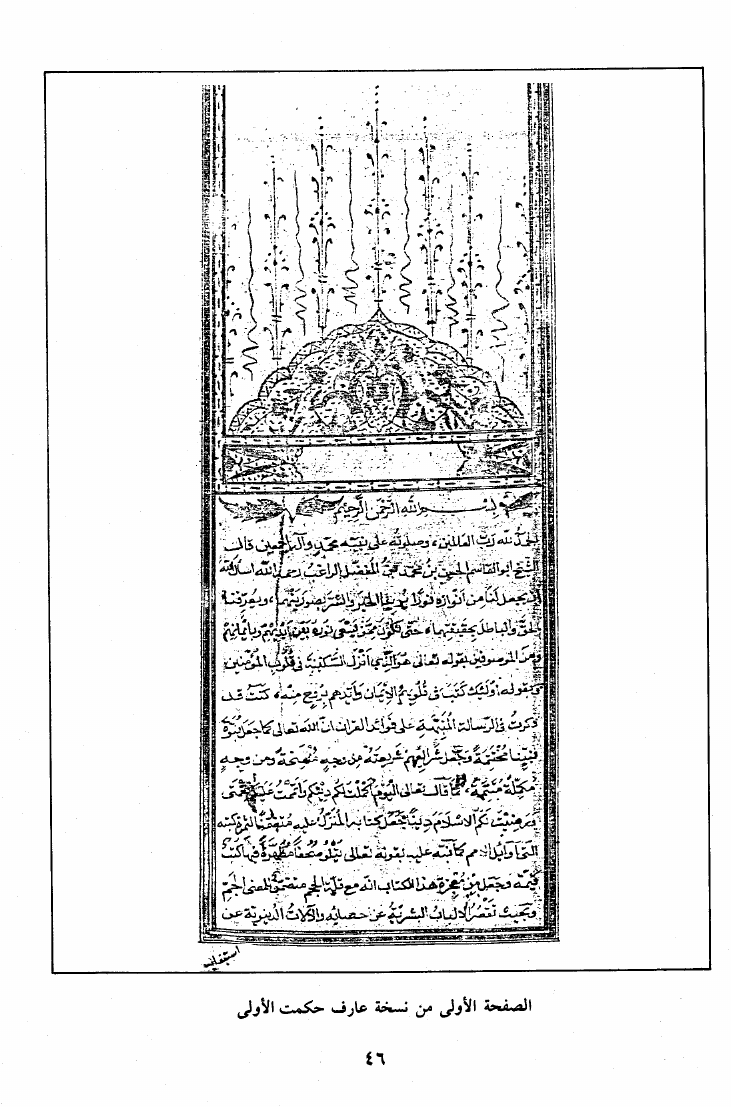 بسم الله الرحمن الرحيم
الحمد لله رب العالمين، وصلوته على نبيه محمد وآله اجمعين قال
الشيخ ابو القاسم الحسين بن محمد بن المفضل الراغب رحمه الله اسأل الله
ان يجعل لنا من انواره نورا يرينا الخير والشر بصورتيهما، ويعرفنا
الحق والباطل بحقيقتيهما، حتى نكون ممن يسعى نوره بين ايديهم وبايمانهم
ومن الموصوفين بقوله تعالى هو الذي انزل السكينة في قلوب المؤمنين
وبقوله: اولئك كتب في قلوبهم الايمان وايدهم بروح منه، كنت قد
ذكرت في الرسالة المنبهة على فوائد القرآن ان الله تعالى كما جعل نبوة
نبينا مختتمة وجعل شرائعهم بشريعته من وجه منتسخة ومن وجه
مكملة متممة، كما قال تعالى اليوم اكملت لكم دينكم واتممت عليكم نعمتي
ورضيت لكم الاسلام دينا جعل كتابه المنزل عليه متضمنا لثمرة كتبه
التي اولاها اوايل الامم كما نبه عليه بقوله تعالى يتلو صحفا مطهرة فيها كتب
قيمة وجعل من معجزة هذا الكتاب انه مع قلة الحجم متضمن للمعنى الجم
وبحيث تقصر الالباب البشرية عن احصائه والآلات الدنيوية عن
استيفائه
الصفحة الأولى من نسخة عارف حكمت الأولى
٤٦